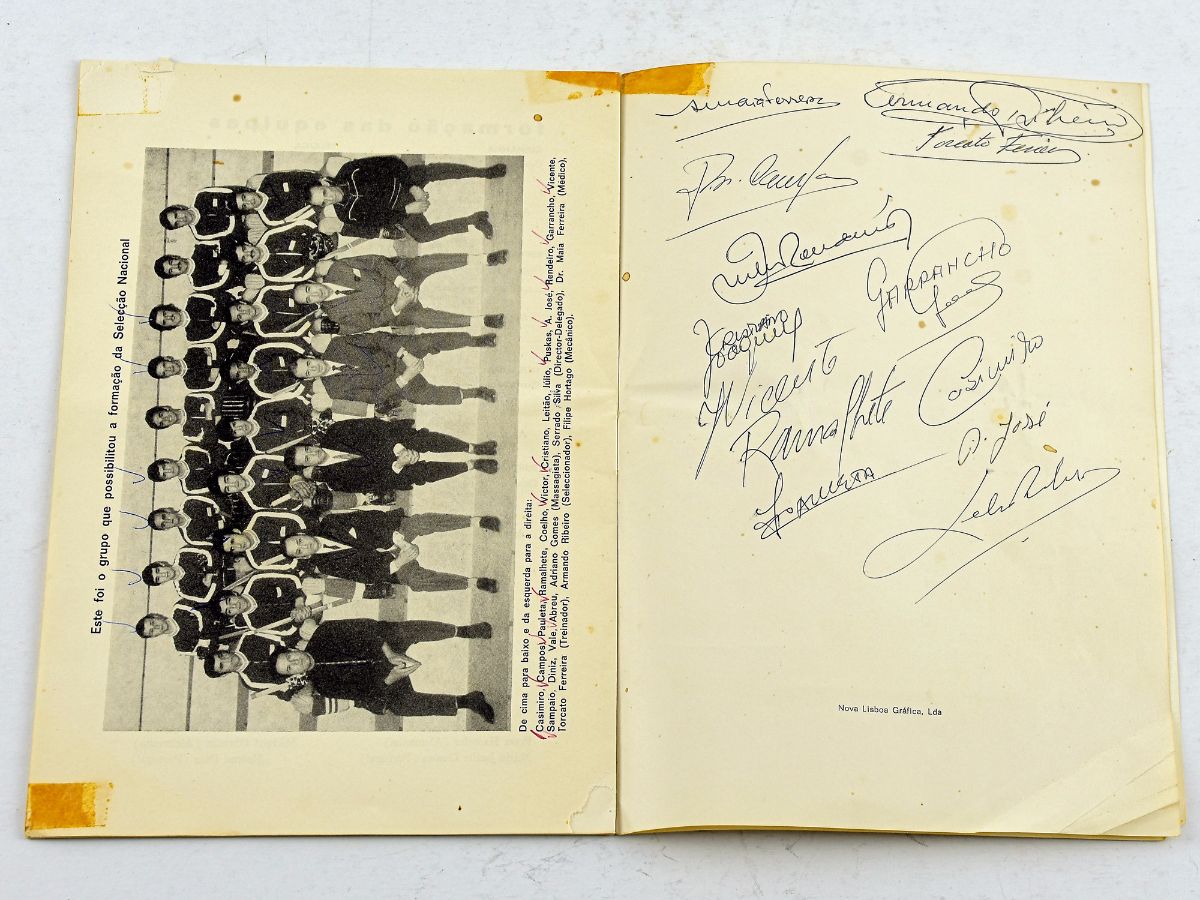 Este foi o grupo que possibilitou a formação da Selecção Nacional
De cima para baixo e da esquerda para a direita:
Casimiro, Campos, Pauleta, Ramalhete, Coelho, Victor, Cristiano, Leitão, Júlio, Puskas, A. José, Rendeiro, Garrancho, Vicente,
Sampaio, Diniz, Vale, Abreu, Adriano Gomes (Massagista), Serrado Silva (Director-Delegado), Dr. Maia Ferreira (Medico),
Torcato Ferreira (Treinador), Armando Ribeiro (Seleccionador), Filipe Hortago (Mecânico).
Armando Ribeiro
Torcato Ferreira
GARRANCHO
Vicente
Casimiro
Ramalhete
A. José
Nova Lisboa Gráfica, Lda